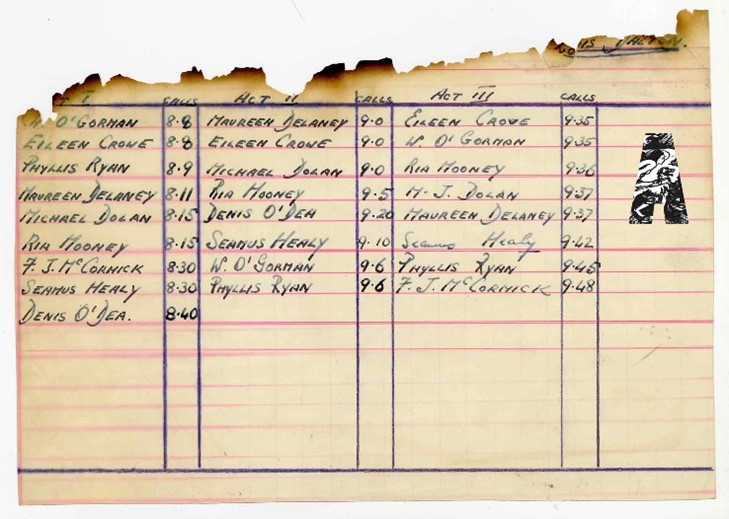 T I CALLS ACT II CALLS ACT III CALLS
W. O'GORMAN 8.8 MAUREEN DELANEY 9.0 EILEEN CROWE 9.35
EILEEN CROWE 8.8 EILEEN CROWE 9.0 W. O'GORMAN 9.35
PHYLLIS RYAN 8.9 MICHAEL DOLAN 9.0 RIA MOONEY 9.36
MAUREEN DELANEY 8.11 RIA MOONEY 9.5 M. J. DOLAN 9.37
MICHAEL DOLAN 8.15 DENIS O'DEA 9.20 MAUREEN DELANEY 9.37
RIA MOONEY 8.15 SEAMUS HEALY 9.10 Seamus Healy 9.42
F. J. McCORMICK 8.30 W. O'GORMAN 9.6 PHYLLIS RYAN 9.45
SEAMUS HEALY 8.30 PHYLLIS RYAN 9.6 F. J. McCORMICK 9.48
DENIS O'DEA. 8.40